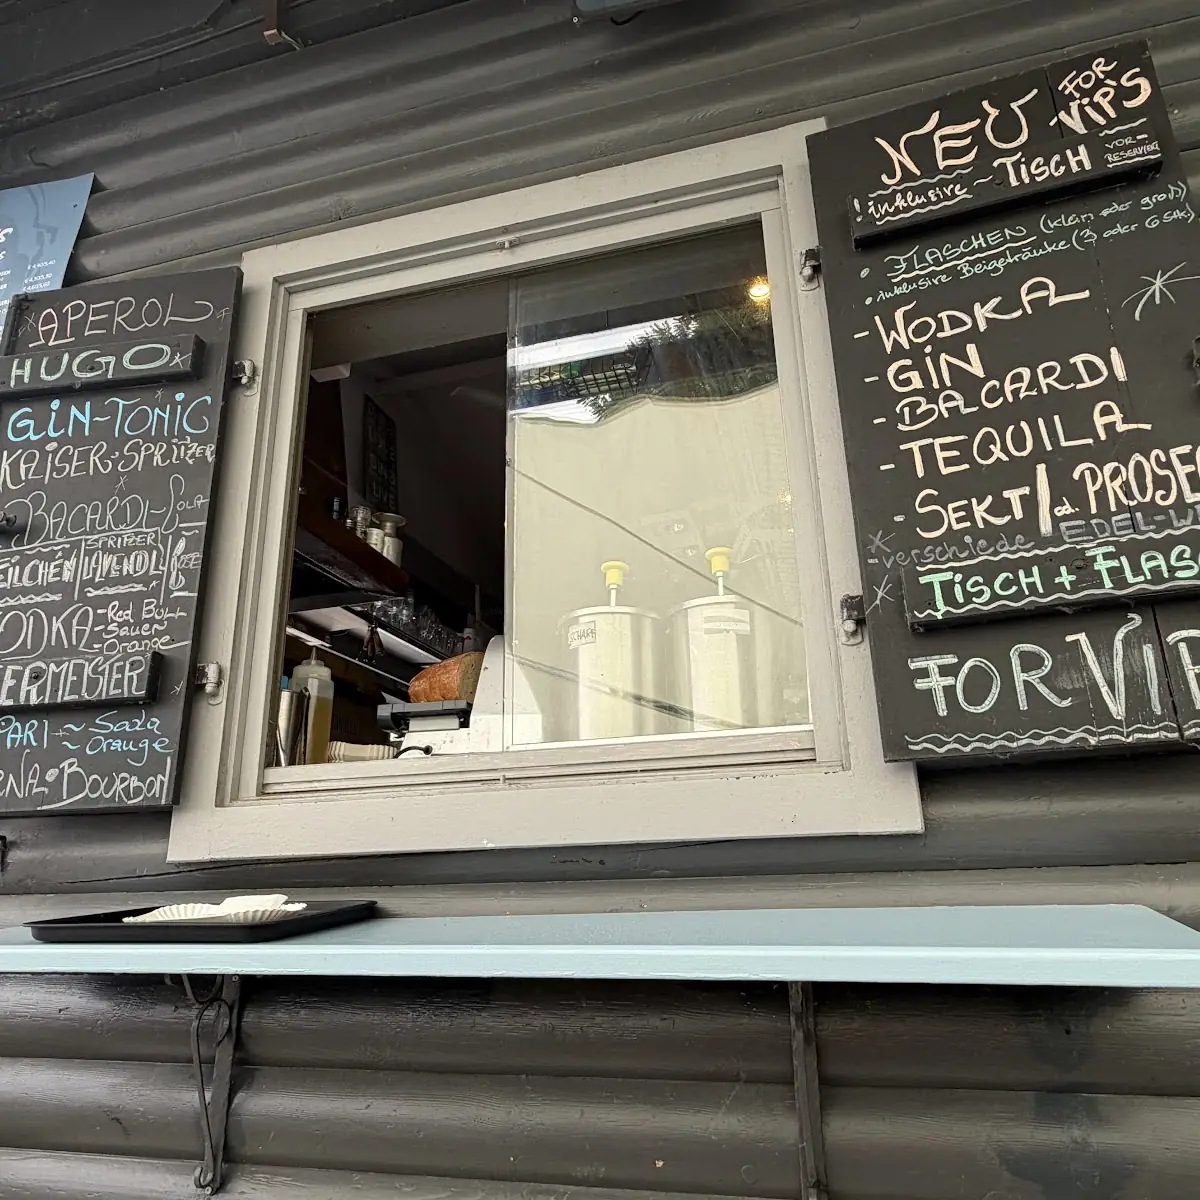 APEROL
HUGO
GIN-TONIC
KAISER-SPRITZER
BACARDI-
SPRITZER
-Red Bull
-Sauer
-Orange
~ Soda
~ Orange
BOURBON
SCHARF
NEU FOR VIP'S
! inklusive ~ TISCH VOR-RESERVIERT
• FLASCHEN (klein oder groß)
• inklusive Beigetränke (3 oder 6 Stk.)
- WODKA
- GIN
- BACARDI
- TEQUILA
- SEKT/od. PROSE
verschiede EDEL-W
TISCH + FLAS
FOR VI